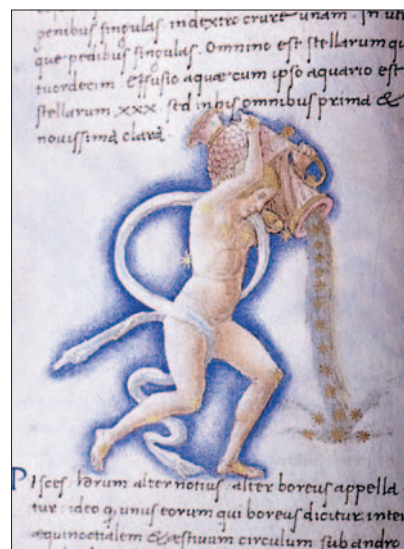 genibus singulas. in dextro crure unam. In utris
que pedibus singulas. Omnino est stellarum qu
tuordecim. effusio aquæ cum ipso aquario est
stellarum xxx. sed in his omnibus prima &
nouissima clara.
PIsces. horum alter notius alter boreus appella
tur: ideo q, unus eorum qui boreus dicitur inter
æquinoctialem & æstiuum circulum sub andro